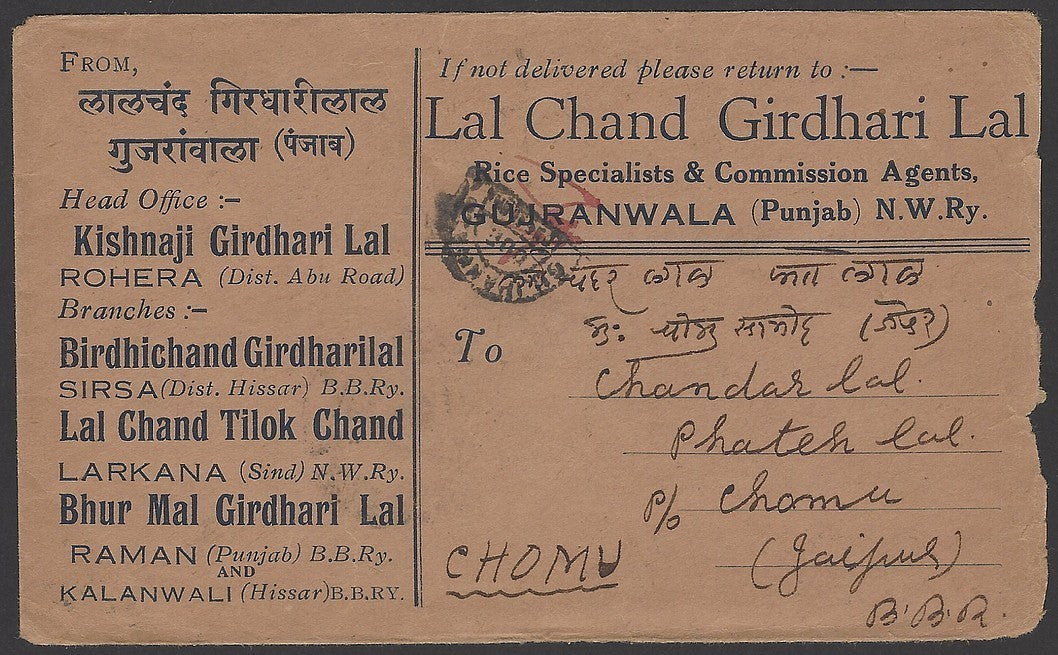 FROM,
लालचंद गिरधारीलाल
गुजरांवाला (पंजाब)
Head Office :-
Kishnaji Girdhari Lal
ROHERA (Dist. Abu Road)
Branches :-
Birdhichand Girdharilal
SIRSA (Dist. Hissar) B.B.Ry.
Lal Chand Tilok Chand
LARKANA (Sind) N.W.Ry.
Bhur Mal Girdhari Lal
RAMAN (Punjab) B.B.Ry.
AND
KALANWALI (Hissar) B.B.RY.
If not delivered please return to :—
Lal Chand Girdhari Lal
Rice Specialists & Commission Agents,
GUJRANWALA (Punjab) N.W.Ry.
To
Chandar lal.
Phateh lal.
P/o Chomu
(Jaipur)
B.B.R.
CHOMU